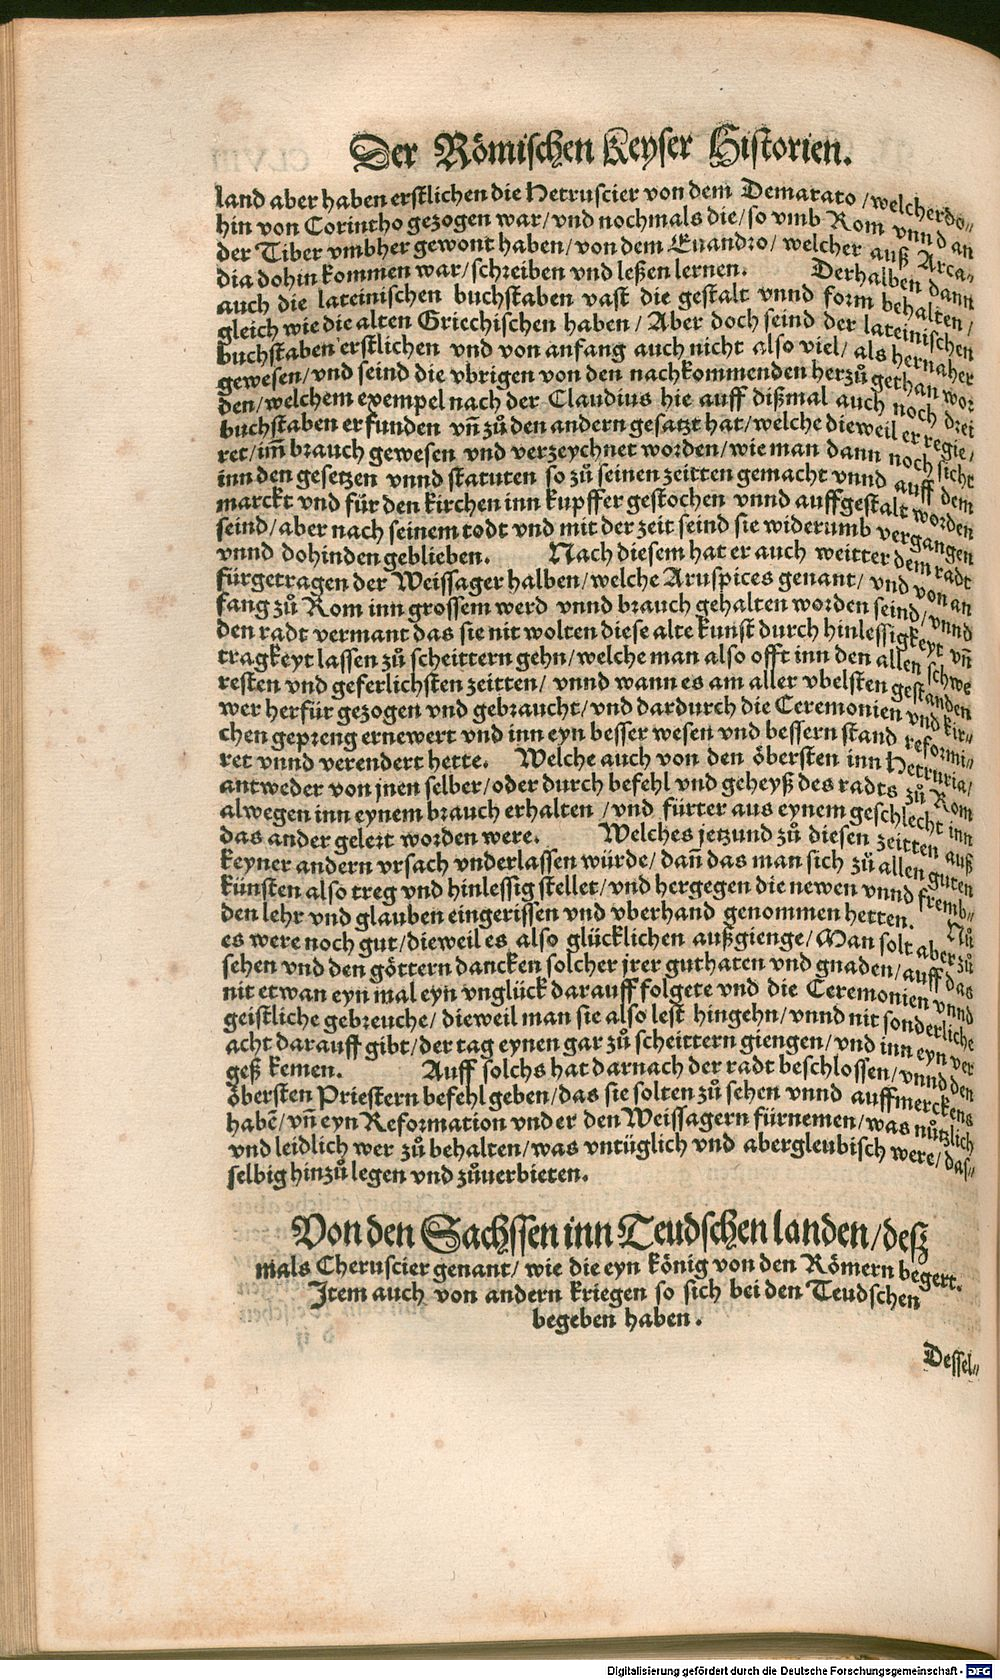 Der Römischen Keyser Historien.
land aber haben erstlichen die Hetruscier von dem Demarato /welcher do⸗
hin von Corintho gezogen war/vnd nochmals die/so vmb Rom vnnd an
der Tiber vmbher gewont haben/von dem Euandro/ welcher auß Arca⸗
dia dohin kommen war/schreiben vnd leßen lernen. Derhalben dann
auch die lateinischen buchstaben vast die gestalt vnnd form behalten/
gleich wie die alten Griechischen haben/ Aber doch seind der lateinischen
buchstaben erstlichen vnd von anfang auch nicht also viel/ als hernaher
gewesen/vnd seind die vbrigen von den nachkommenden herzů gethan wor
den/welchem exempel nach der Claudius hie auff dißmal auch noch drei
buchstaben erfunden vñ zů den andern gesatzt hat/welche dieweil er regie/
ret/im̃ brauch gewesen vnd verzeychnet worden/wie man dann noch sicht
inn den gesetzen vnnd statuten so zů seinen zeitten gemacht vnnd auff dem
marckt vnd für den kirchen inn kupffer gestochen vnnd auffgestalt worden
seind/aber nach seinem todt vnd mit der zeit seind sie widerumb vergangen
vnnd dohinden geblieben. Nach diesem hat er auch weitter dem radt
fürgetragen der Weissager halben/welche Aruspices genant/ vnd von an
fang zů Rom inn grossem werd vnnd brauch gehalten worden seind/vnnd
den radt vermant das sie nit wolten diese alte kunst durch hinlessigkeyt vñ
tragkeyt lassen zů scheittern gehn/welche man also offt inn den allen schwe
resten vnd geferlichsten zeitten/ vnnd wann es am aller vbelsten gestanden
wer herfür gezogen vnd gebraucht/vnd dardurch die Ceremonien vnd kir⸗
chen gepreng ernewert vnd inn eyn besser wesen vnd bessern stand reformi⸗
ret vnnd verendert hette. Welche auch von den öbersten inn Hetruria/
antweder von jnen selber/oder durch befehl vnd geheyß des radts zů Rom
alwegen inn eynem brauch erhalten /vnd fürter aus eynem geschlecht inn
das ander gelert worden were. Welches jetzund zů diesen zeitten auß
keyner andern vrsach vnderlassen würde/ dañ das man sich zů allen guten
künsten also treg vnd hinlessig stellet/vnd hergegen die newen vnnd fremb⸗
den lehr vnd glauben eingerissen vnd vberhand genommen hetten. Nů
es were noch gut/dieweil es also glücklichen außgienge/Man solt aber zů
sehen vnd den göttern dancken solcher jrer guthaten vnd gnaden/auff das
nit etwan eyn mal eyn vnglück darauff folgete vnd die Ceremonien vnnd
geistliche gebreuche/ dieweil man sie also lest hingehn/vnnd nit sonderliche
acht darauff gibt/der tag eynen gar zů scheittern giengen/vnd inn eyn ver
geß kemen. Auff solchs hat darnach der radt beschlossen/vnnd den
öbersten Priestern befehl geben/das sie solten zů sehen vnnd auffmerckens
habẽ/vñ eyn Reformation vnder den Weissagern fürnemen/was nützlich
vnd leidlich wer zů behalten/was vntüglich vnd abergleubisch were/das⸗
selbig hinzů legen vnd zůuerbieten.
Von den Sachssen inn Teudschen landen/desz
mals Cheruscier genant/ wie die eyn könig von den Römern begert.
Item auch von andern kriegen so sich bei den Teudschen
begeben haben.
Dessel⸗
Digitalisierung gefördert durch die Deutsche Forschungsgemeinschaft - DFG